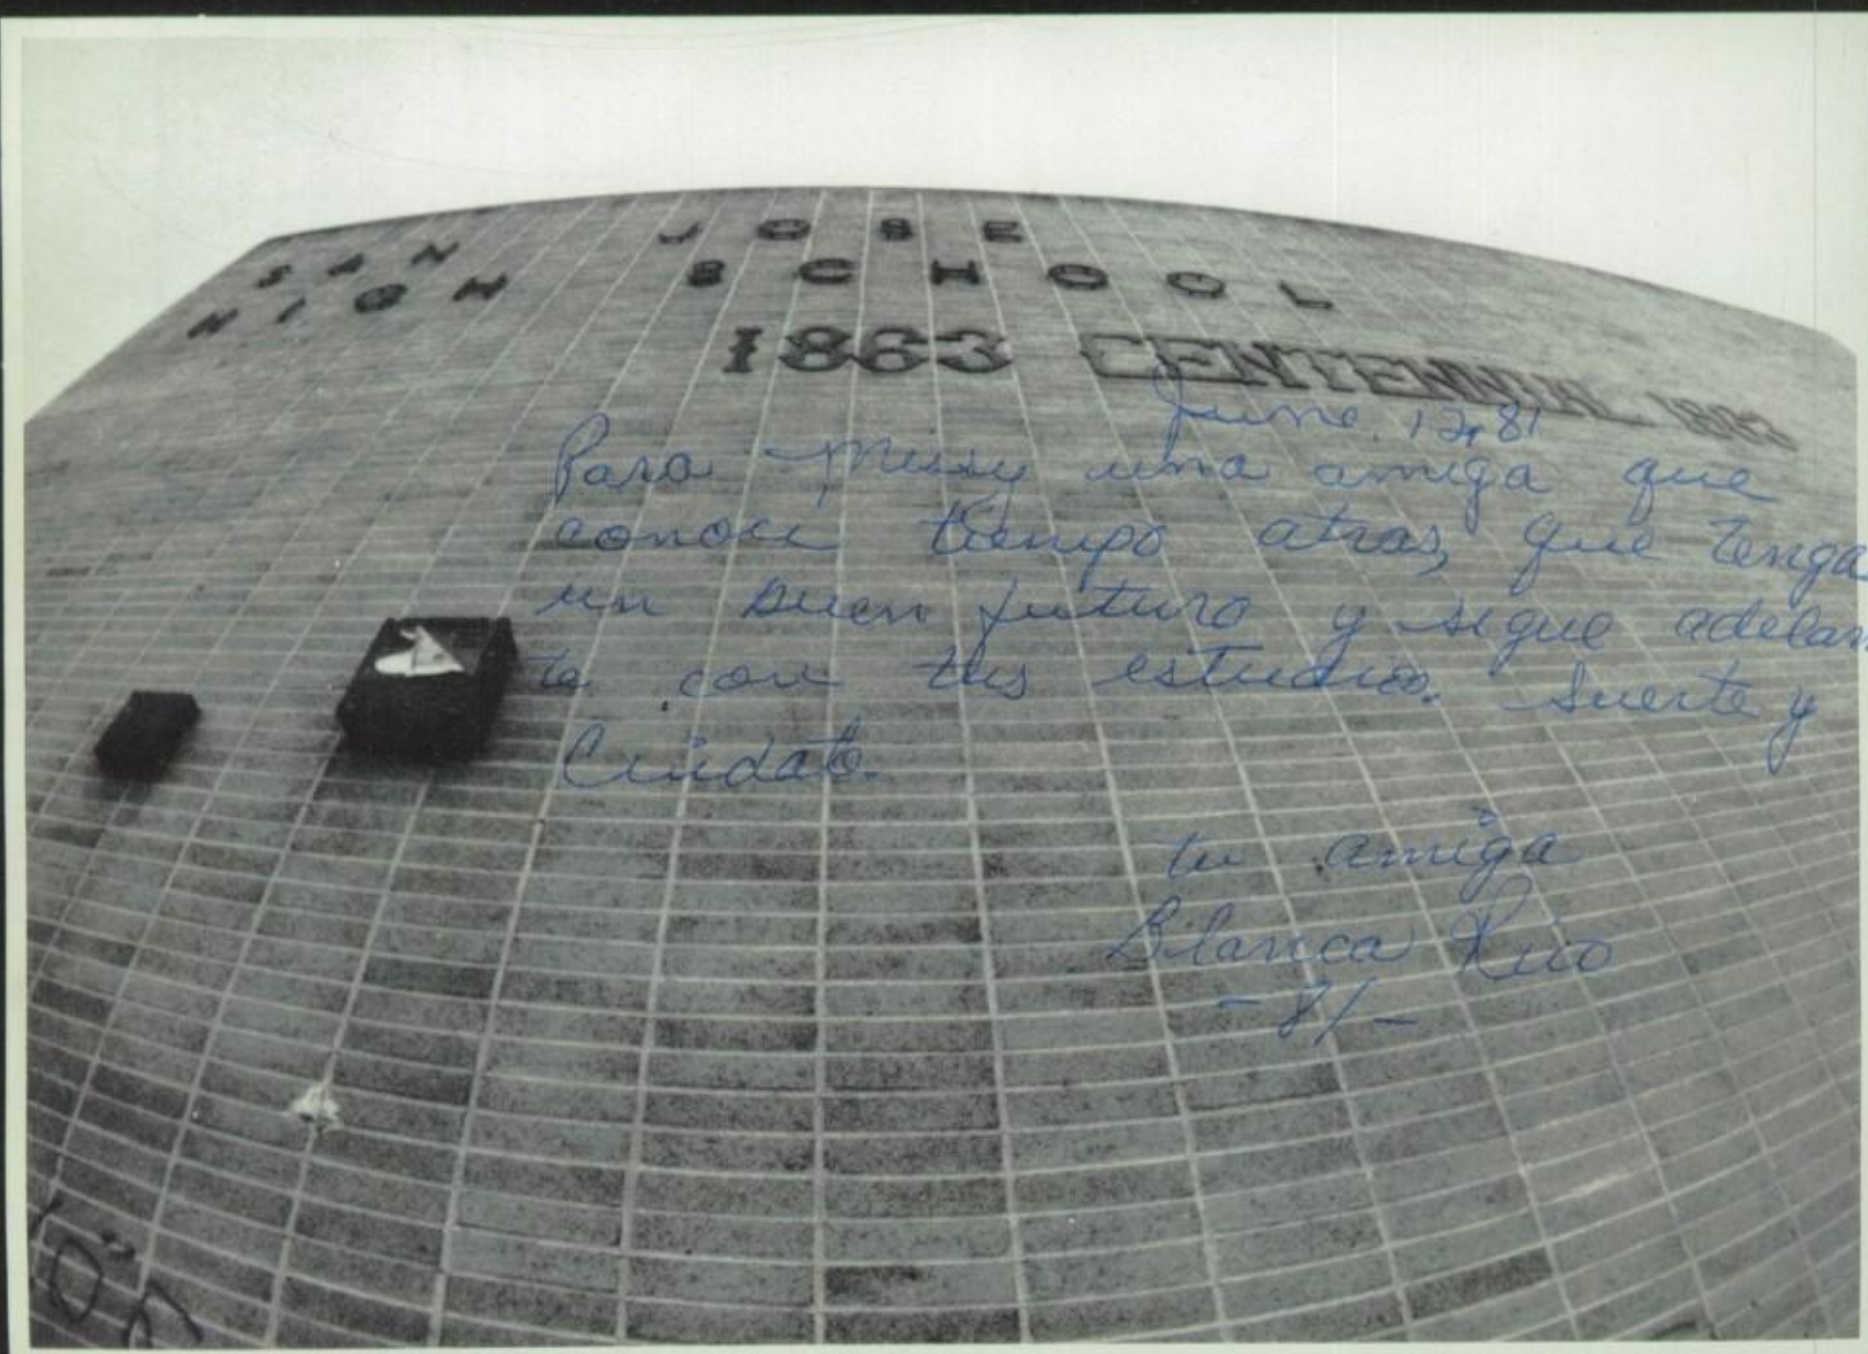 SAN JOSE
HIGH SCHOOL
1863 CENTENNIAL 1963
June. 12, 81
Para Missy una amiga que
conoci tiempo atras, que tenga
un buen futuro y sigue adelan
te con tus estudios. Suerte y
Cuidate.
tu amiga
Blanca Rico
-81-